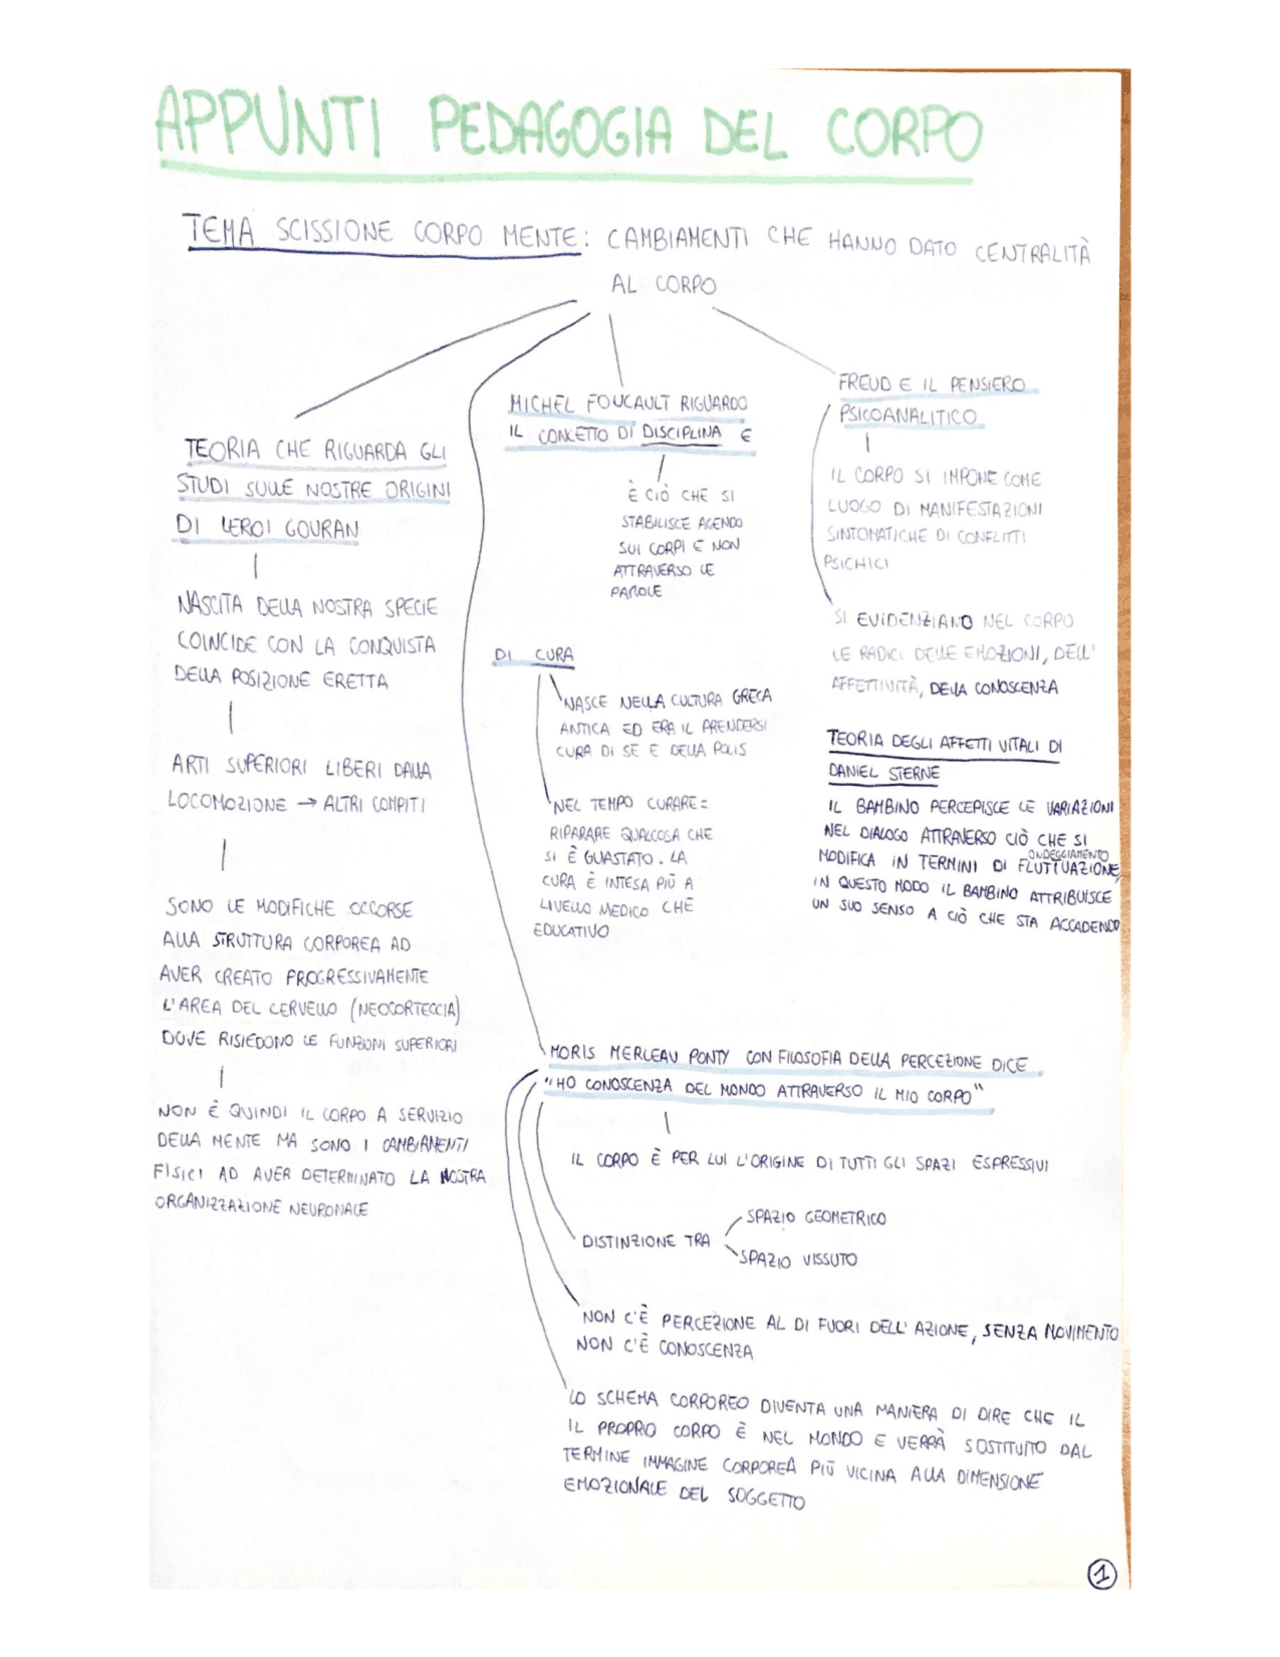 APPUNTI PEDAGOGIA DEL CORPO
TEMA SCISSIONE CORPO MENTE: CAMBIAMENTI CHE HANNO DATO CENTRALITÀ
AL CORPO
TEORIA CHE RIGUARDA GLI
STUDI SULLE NOSTRE ORIGINI
DI LEROI GOURAN
NASCITA DELLA NOSTRA SPECIE
COINCIDE CON LA CONQUISTA
DELLA POSIZIONE ERETTA
ARTI SUPERIORI LIBERI DALLA
LOCOMOZIONE → ALTRI COMPITI
SONO LE MODIFICHE OCCORSE
ALLA STRUTTURA CORPOREA AD
AVER CREATO PROGRESSIVAMENTE
L'AREA DEL CERVELLO (NEOCORTECCIA)
DOVE RISIEDONO LE FUNZIONI SUPERIORI
NON È QUINDI IL CORPO A SERVIZIO
DELLA MENTE MA SONO I CAMBIAMENTI
FISICI AD AVER DETERMINATO LA NOSTRA
ORGANIZZAZIONE NEURONALE
MICHEL FOUCAULT RIGUARDO
IL CONCETTO DI DISCIPLINA E
È CIÒ CHE SI
STABILISCE AGENDO
SUI CORPI E NON
ATTRAVERSO LE
PAROLE
DI CURA
NASCE NELLA CULTURA GRECA
ANTICA ED ERA IL PRENDERSI
CURA DI SE E DELLA POLIS
NEL TEMPO CURARE =
RIPARARE QUALCOSA CHE
SI È GUASTATO. LA
CURA È INTESA PIÙ A
LIVELLO MEDICO CHE
EDUCATIVO
FREUD E IL PENSIERO
PSICOANALITICO
IL CORPO SI IMPONE COME
LUOGO DI MANIFESTAZIONI
SINTOMATICHE DI CONFLITTI
PSICHICI
SI EVIDENZIANO NEL CORPO
LE RADICI DELLE EMOZIONI, DELL'
AFFETTIVITÀ, DELLA CONOSCENZA
TEORIA DEGLI AFFETTI VITALI DI
DANIEL STERNE
IL BAMBINO PERCEPISCE LE VARIAZIONI
NEL DIALOGO ATTRAVERSO CIÒ CHE SI
ONDEGGIAMENTO
MODIFICA IN TERMINI DI FLUTTUAZIONE,
IN QUESTO MODO IL BAMBINO ATTRIBUISCE
UN SUO SENSO A CIÒ CHE STA ACCADENDO
MORIS MERLEAU PONTY CON FILOSOFIA DELLA PERCEZIONE DICE
"HO CONOSCENZA DEL MONDO ATTRAVERSO IL MIO CORPO"
IL CORPO È PER LUI L'ORIGINE DI TUTTI GLI SPAZI ESPRESSIVI
SPAZIO GEOMETRICO
DISTINZIONE TRA
SPAZIO VISSUTO
NON C'È PERCEZIONE AL DI FUORI DELL'AZIONE, SENZA MOVIMENTO
NON C'È CONOSCENZA
LO SCHEMA CORPOREO DIVENTA UNA MANIERA DI DIRE CHE IL
IL PROPRIO CORPO È NEL MONDO E VERRÀ SOSTITUITO DAL
TERMINE IMMAGINE CORPOREA PIÙ VICINA ALLA DIMENSIONE
EMOZIONALE DEL SOGGETTO
1